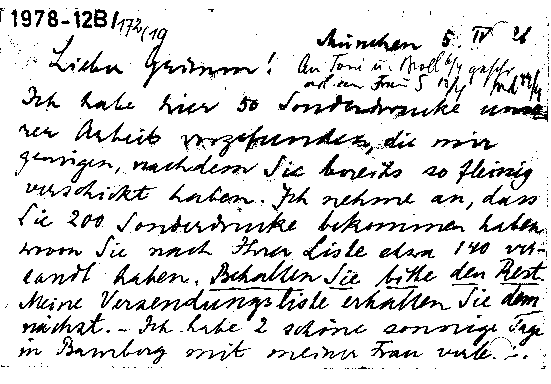 1978-12B/172/19
München 5. IV 26
Lieber Grimm! An Toni u.
Ich habe hier 50 Sonderdrucke unse-
rer Arbeit vorgefunden, die mir
genügen, nachdem Sie bereits so fleissig
verschickt haben. Ich nehme an, dass
Sie 200 Sonderdrucke bekommen haben,
wovon Sie nach Ihrer Liste etwa 140 ver-
sandt haben. Behalten Sie bitte den Rest.
Meine Versendungsliste erhalten Sie dem-
nächst. – Ich habe 2 schöne sonnige Tage
in Bamberg mit meiner Frau verle